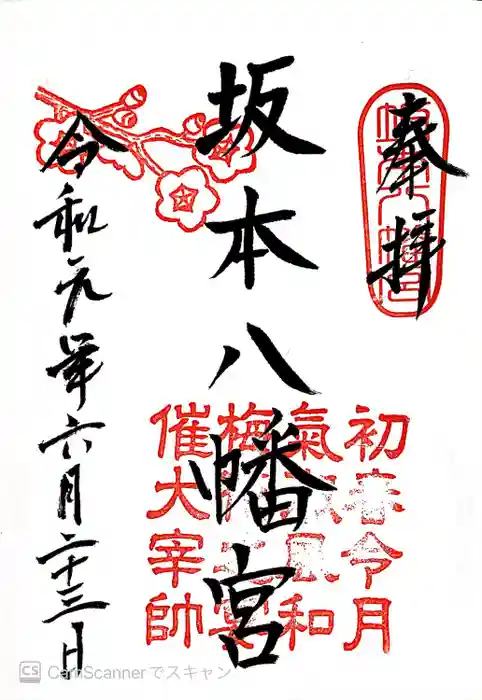 奉拝
坂本八幡宮
初春令月
氣淑風和
梅花之宴
催大宰帥
令和元年六月二十三日
CS CamScannerでスキャン